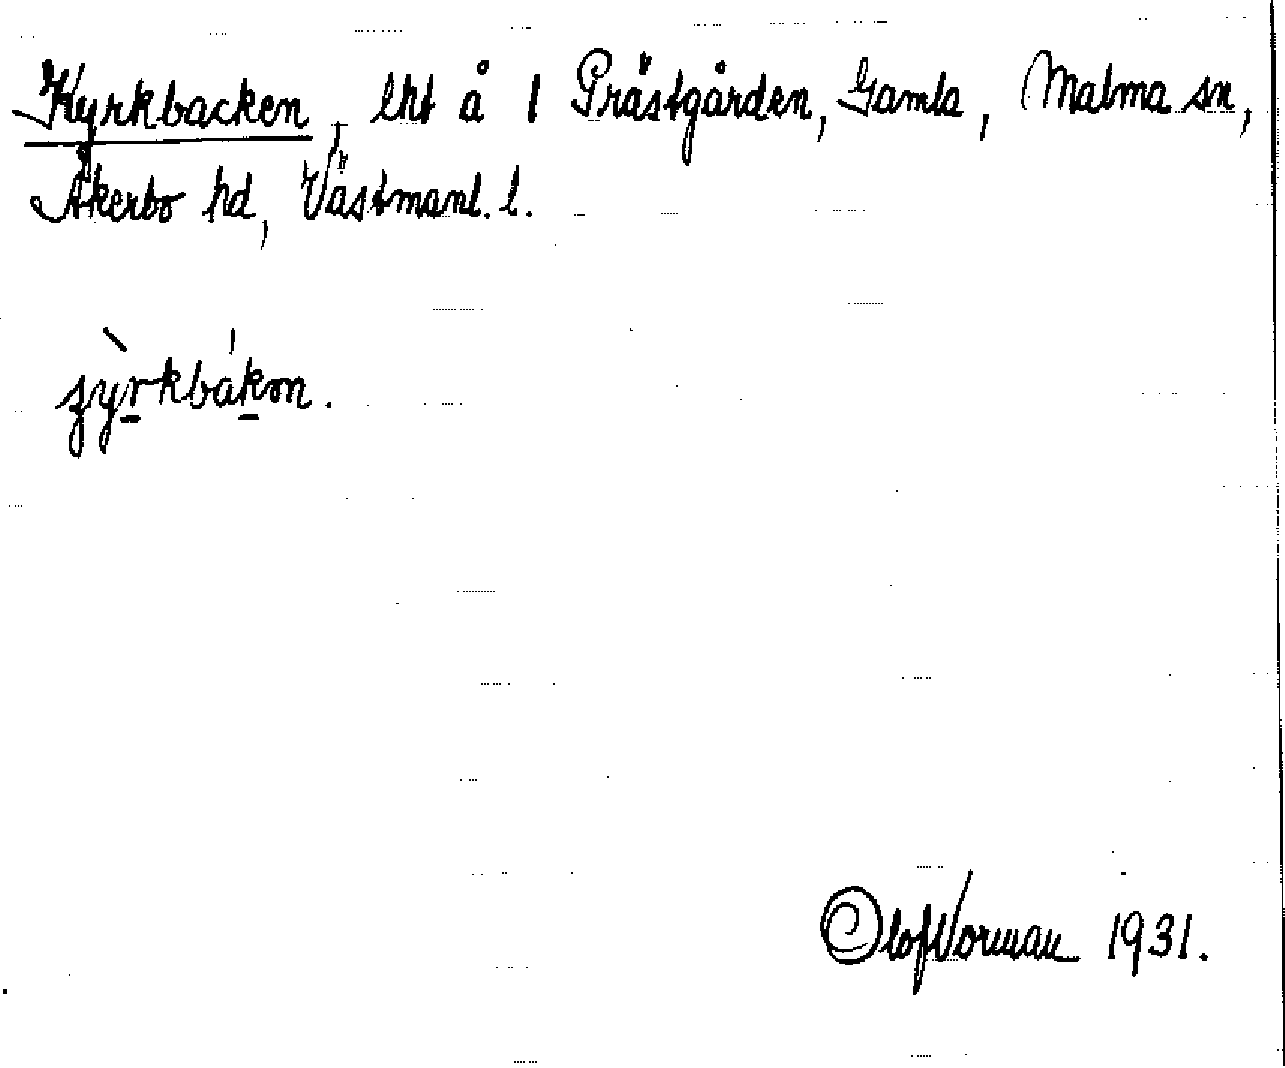 Kyrkbacken, lht å 1 Prästgården, Gamla, Malma sn,
Åkerbo hd, Västmanl. l.
Olof Norman 1931.